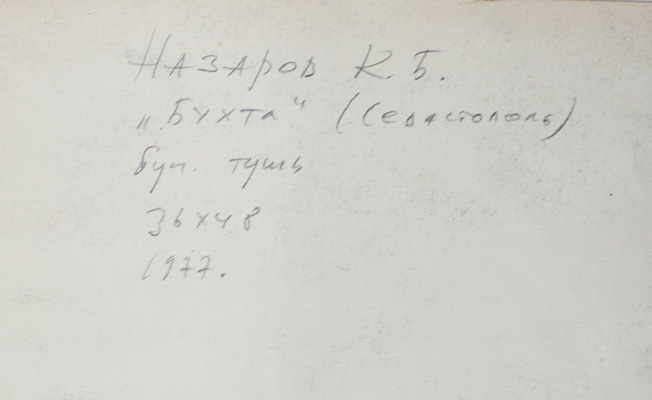 Назаров К. Б.
„Бухта" (Севастополь)
бум. тушь
36х48
1977.